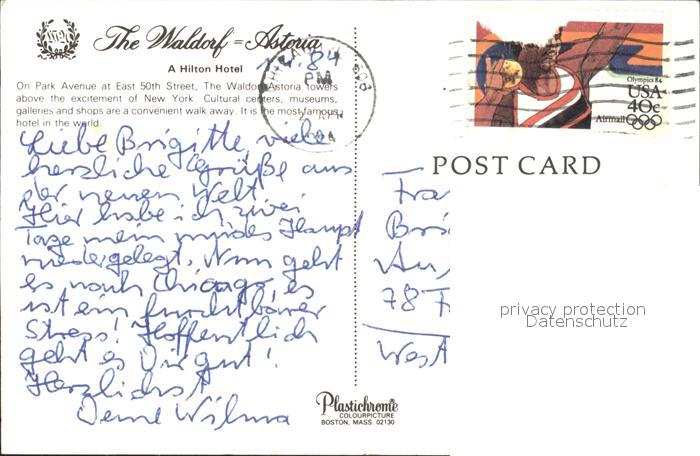 The Waldorf=Astoria
A Hilton Hotel
On Park Avenue at East 50th Street, The Waldorf-Astoria towers
above the excitement of New York. Cultural centers, museums,
galleries and shops are a convenient walk away. It is the most famous
hotel in the world.
84
PM
Olympics 84
USA
40c
Airmail
POST CARD
Liebe Brigitte, viele
herzliche Grüße aus
der neuen Welt
Hier habe ich zwei
Tage mein müdes Haupt
niedergelegt. Nun geht
es nach Chicago, es
ist ein furchtbarer
Stress! Hoffentlich
geht es Dir gut!
Herzlichst
Deine Wilma
Fra
Bri
78 F
West
privacy protection
Datenschutz
Plastichrome
COLOURPICTURE
BOSTON, MASS. 02130